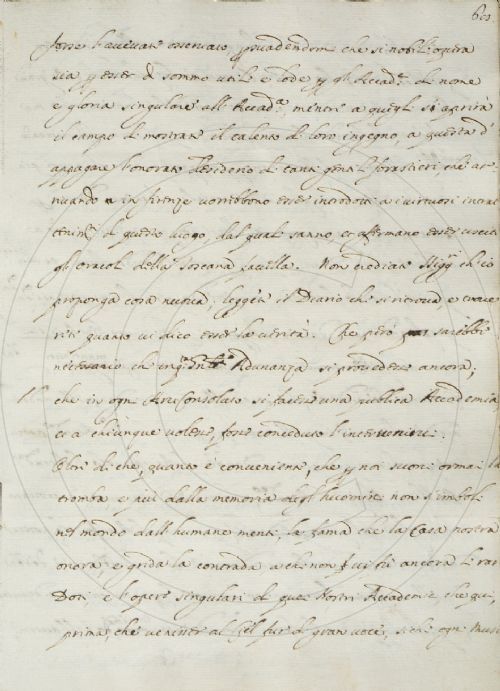 601
forse l'avevate osservato, psuadendomi che si nobil'opera
sia p esser di sommo utile e lode p gli Accad.ci di nome
e gloria singulare all'Accad.a, mentre a quegli si aprirà
il campo di mostrare il talento di loro ingegno, a questa d'
appagare l'onorato desiderio di tanti gentil forastieri che ar-
rivando in firenze vorrebbono esser introdotti a i virtuosi
di questo luogo, dal qual sanno, et affermano esser usciti
gli oracoli della Toscana favella. Non crediate ch'io
proponga cosa nuova; leggete il Diario che si ritrova, e trove-
rete quanto vi dico esser la verità. Che però sarebbe
necessario che Adunanza si provedesse ancora;
che in ogni Arciconsolato si facesse una publica Accademia
et a chiunque volesse, fosse conceduto l'intervenire.
Oltre di che, quanto è conveniente, che p noi suoni ormai la
tromba, e più dalla memoria degli huomini non
nel mondo dall'humane menti, la fama che la Casa nostra
onora e grida la contrada a chi non vi fù ancora
Doti, e l'opere singulari di quei Nostri Accademi che qui
prima, che venisser al di gran voce, si che ogni